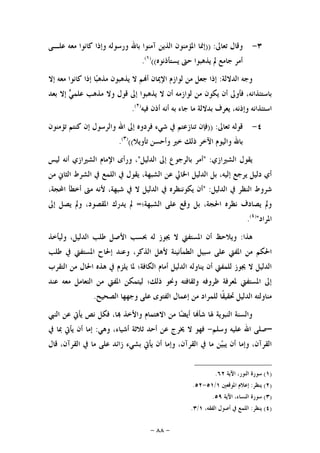 ٣- وقال تعالى: ((إنما المؤمنون الذين آمنوا بالله ورسوله وإذا كانوا معه على
أمر جامع لم يذهبوا حتى يستأذنوه))(١).
وجه الدلالة: إذا جعل من لوازم الإيمان أنهم لا يذهبون مذهبًا إذا كانوا معه إلا
باستئذانه، فأولى أن يكون من لوازمه أن لا يذهبوا إلى قول ولا مذهب علمي إلا بعد
استئذانه وإذنه، يعرف بدلالة ما جاء به أنه أذن فيه(٢).
٤- قوله تعالى: ((فإن تنازعتم في شيء فردوه إلى الله والرسول إن كنتم تؤمنون
بالله واليوم الآخر ذلك خير وأحسن تأويلا))(٣).
يقول الشيرازي: "أمر بالرجوع إلى الدليل"، ورأى الإمام الشيرازي أنه ليس
أي دليل يرجع إليه، بل الدليل الخالي عن الشبهة، يقول في اللمع في الشرط الثاني من
شروط النظر في الدليل: "أن يكونظره في الدليل لا في شبهة، لأنه متى أخطأ الحجة،
ولم يصادف نظره الحجة، بل وقع على الشبهة؛= لم يدرك المقصود، ولم يصل إلى
المراد"(٤).
هذا: ويلاحظ أن المستفتي لا يجوز له بحسب الأصل طلب الدليل، وليأخذ
الحكم من المفتي على سبيل الطمأنينة لأهل الذكر، وعند إلحاح المستفتي في طلب
الدليل لا يجوز للمفتي أن يناوله الدليل أمام الكافة؛ لما يلزم في هذه الحال من التقرب
إلى المستفتي لمعرفة ظروفه وثقافته ونحو ذلك؛ ليتمكن المفتي من التعامل معه عند
مناولته الدليل تحقيقًا للمراد من إعمال الفتوى على وجهها الصحيح.
والسنة النبوية لها شأنها أيضًا من الاهتمام والأخذ بها، فكل نص يأتي عن النبي
-صلى الله عليه وسلم- فهو لا يخرج عن أحد ثلاثة أشياء، وهي: إما أن يأتي بما في
القرآن، وإما أن يبيّن ما في القرآن، وإما أن يأتي بشيء زائد على ما في القرآن، قال
(١) سورة النور، الآية ٦٢.
(٢) ينظر: إعلام الموقعين ٥١/١-٥٢.
(٣) سورة النساء، الآية ٥٩.
(٤) ينظر: اللمع في أصول الفقه، ٣/١.
- ٨٨ -